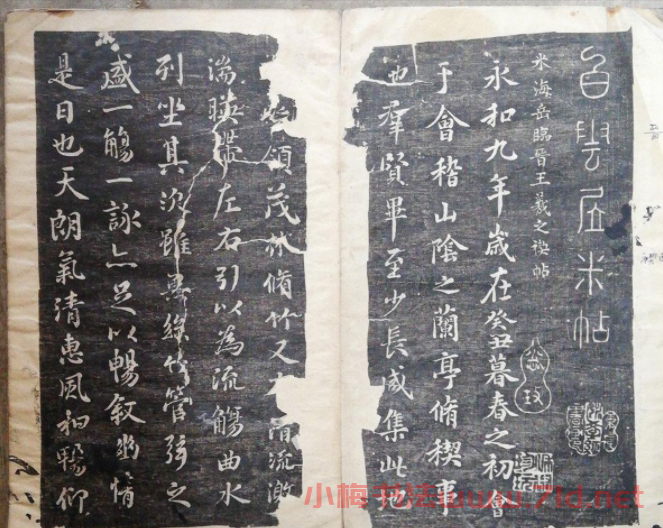 白雲居米帖
米海岳臨晉王羲之禊帖
永和九年歲在癸丑暮春之初會
于會稽山陰之蘭亭脩稧事
也羣賢畢至少長咸集此地
領茂林脩竹又流激
湍暎帶左右引以為流觴曲水
列坐其次雖無絲竹管弦之
盛一觴一詠亦足以暢敘幽情
是日也天朗氣清惠風和暢仰
小梅书法